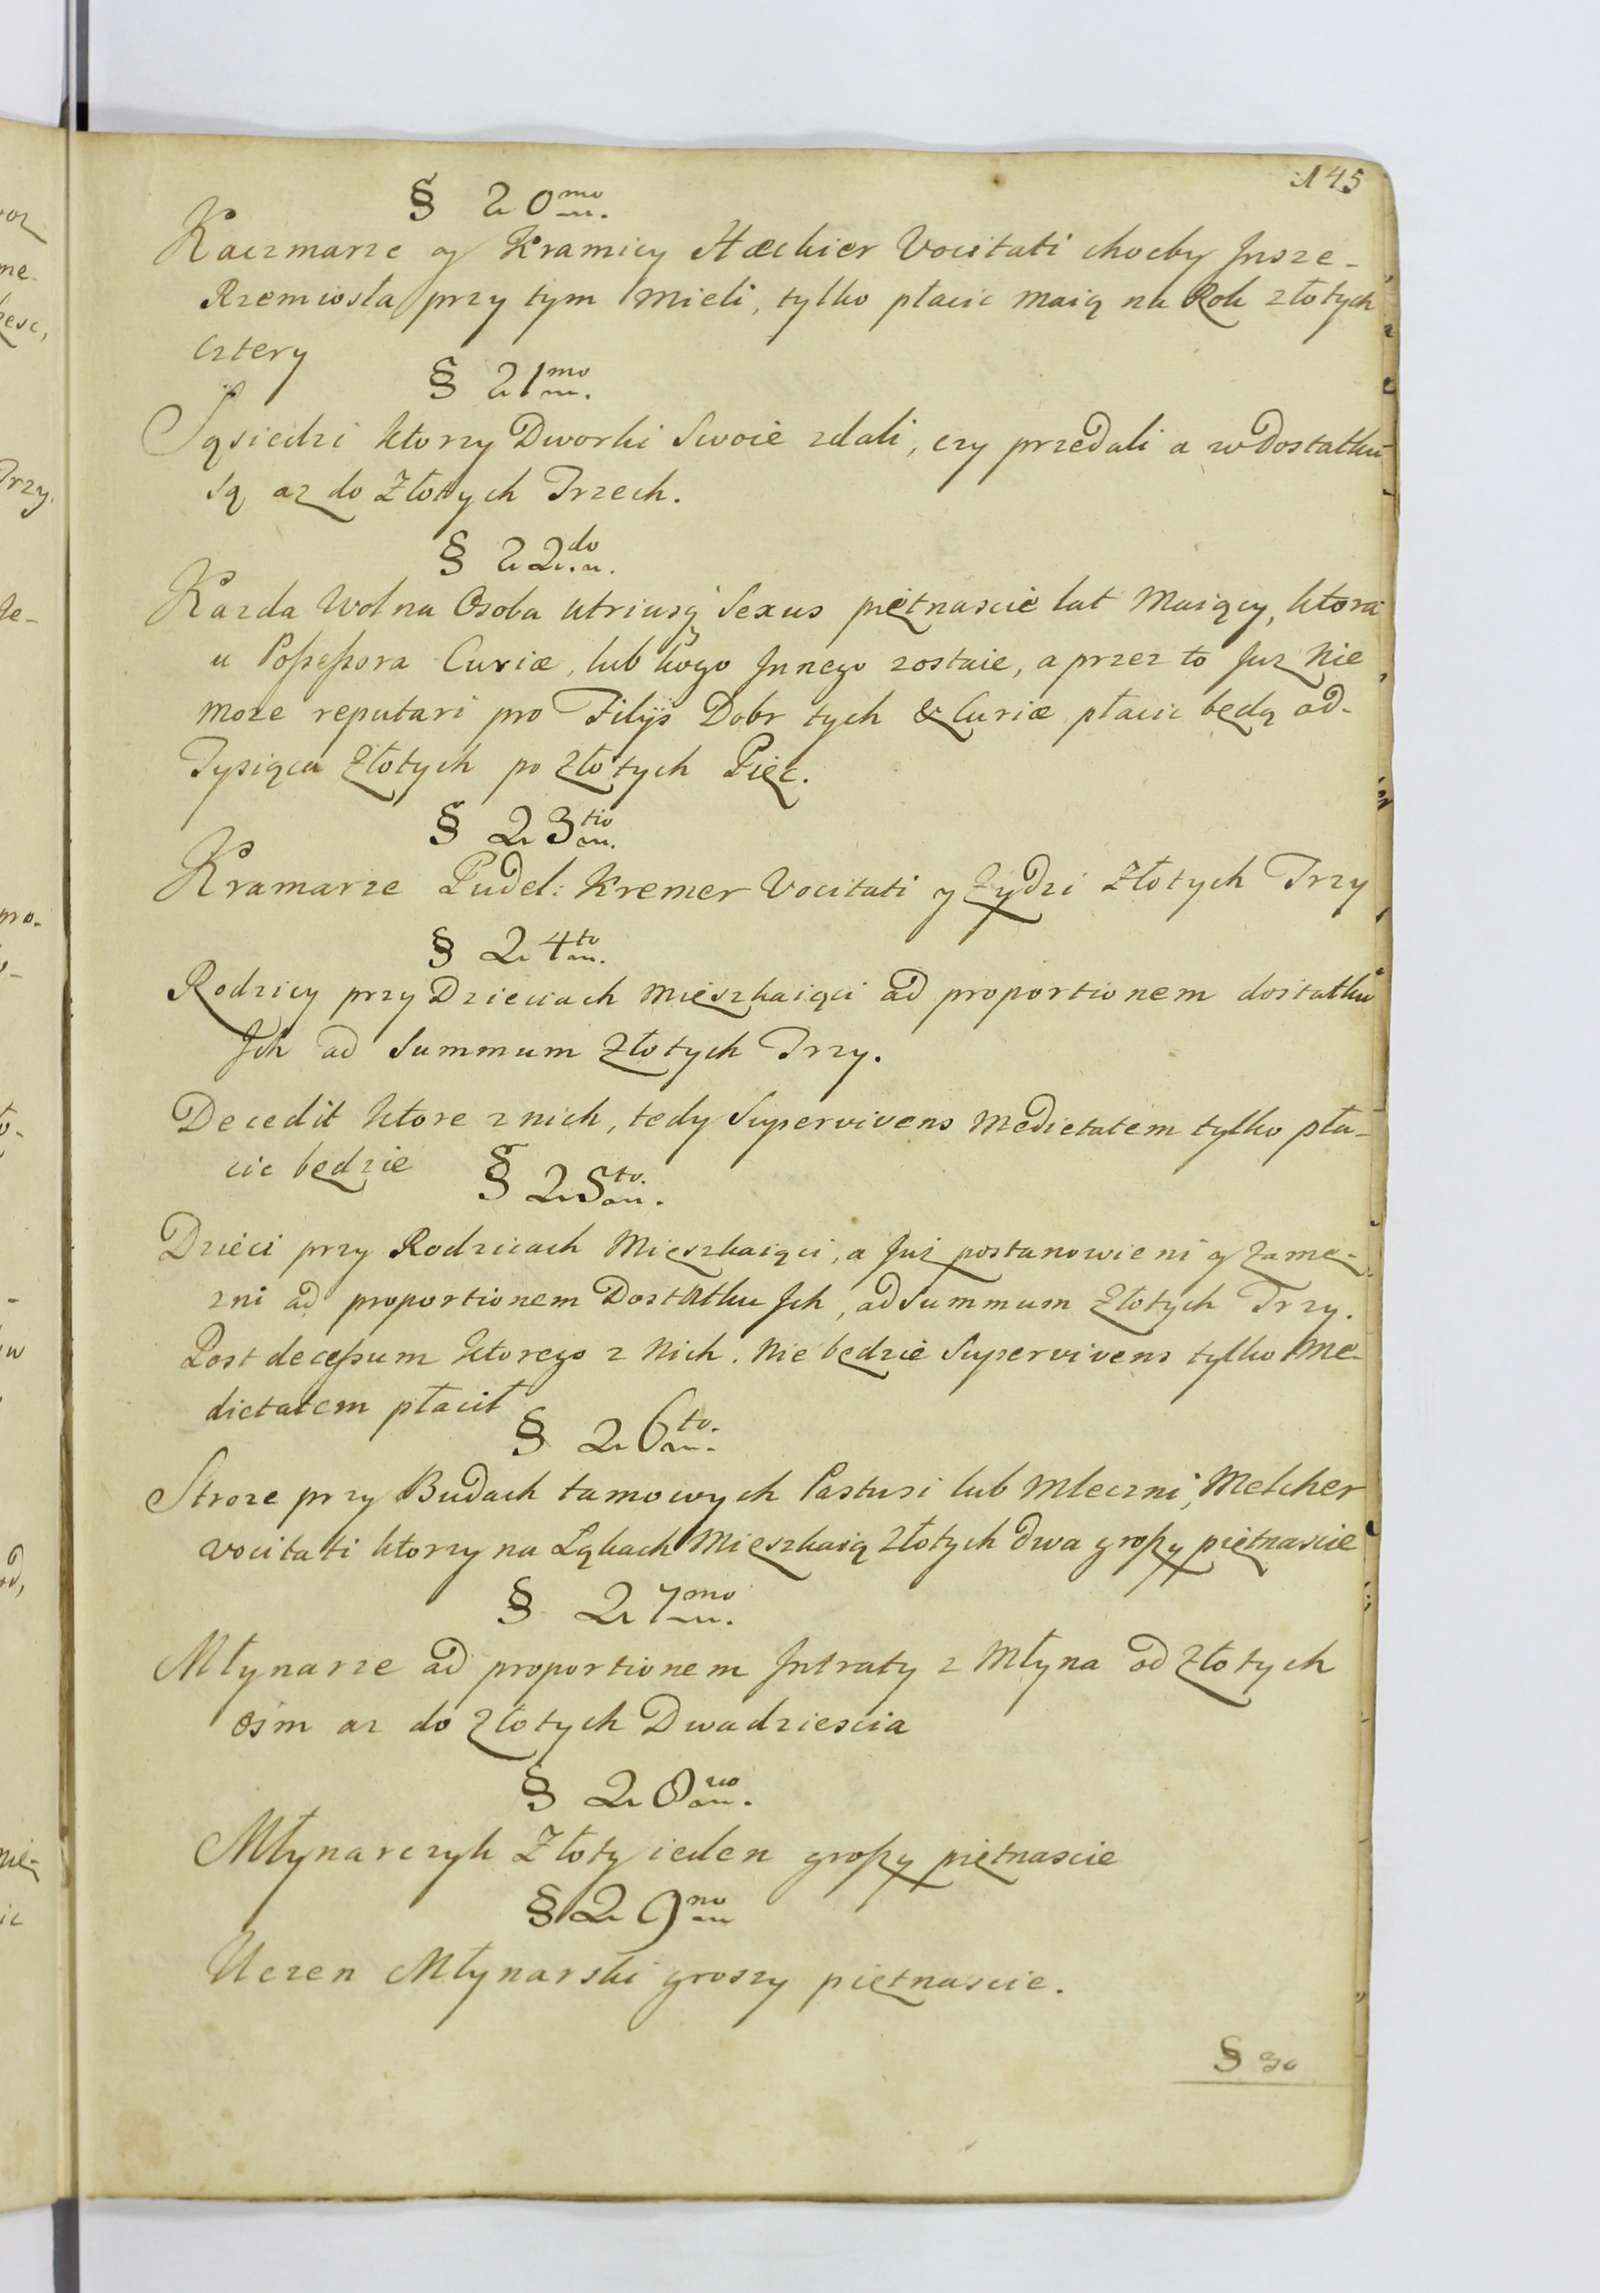 145
§ 20mo
Kaczmarze y Kramicy Hæckier Vocitati choćby Jnsze-
Rzemiosła przy tym mieli, tylko płacic maią na Rok złotych
cztery
§ 21mo
Sąsiedzi ktorzy Dworki Swoie zdali, czy przedali a w Dostatku
są az do Złotych Trzech.
§ 22do
Kazda Wolna Osoba utriusq Sexus piętnascie lat Maiący, ktora
u Possessora Curiæ, lub kogo Jnnego zostaie, a przez to Juz Nie
moze reputari pro Filijs Dobr tych & Curiæ płacic będą od-
Tysiąca Złotych po Złotych Pięc.
§ 23tio
Kramarze Pudel: Kremer Vocitati y Zydzi Złotych Trzy
§ 24to
Rodzicy przy Dzieciach mieszkaiąci ad proportionem dostatku
Jch ad Summum Złotych Trzy.
Decedit ktore z nich, tedy Supervivens Medietatem tylko pła-
cic będzie
§ 25to
Dzieci przy Rodzicach Mieszkaiąci, a Juz postanowieni y zamę-
zni ad proportionem Dostatku Jch, ad Summum Złotych Trzy.
Post decessum ktorego z Nich. Nie będzie Supervivens tylko Me-
dietatem płacił
§ 26to
Stroze przy Budach tamowych Pastusi lub Mleczni, Melcher
vocitati ktorzy na Łąkach Mieszkaią Złotych dwa groszy piętnascie
§ 27mo
Młynarze ad proportionem Jntraty z Młyna od Złotych
osm az do Złotych Dwadziescia
§ 28vo
Młynarczyk Złoty ieden groszy piętnascie
§ 29no
Uczen Młynarski groszy piętnascie.
§ 30